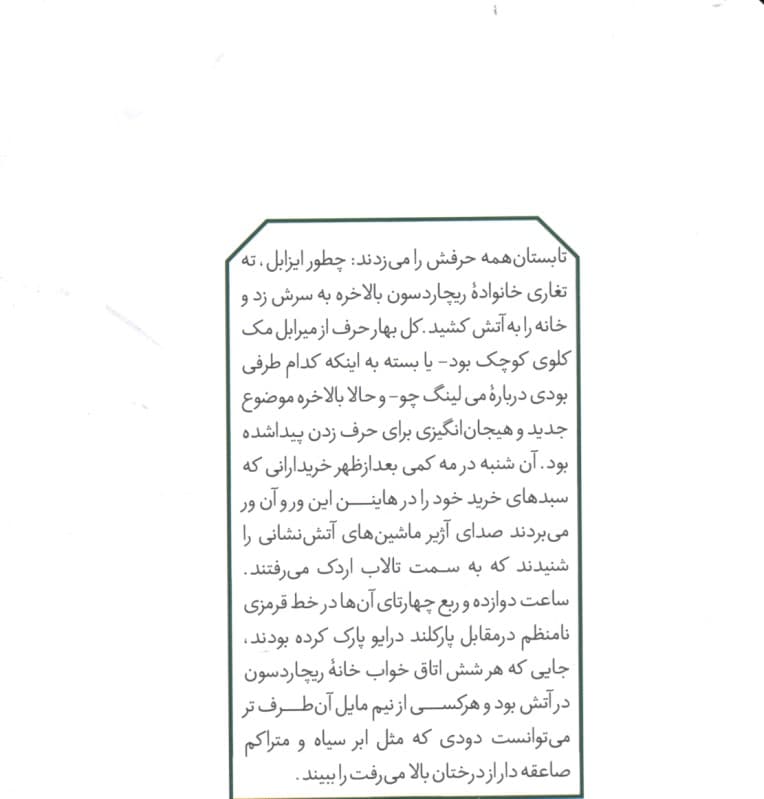 تابستان همه حرفش را می‌زدند: چطور ایزابل، ته
تغاری خانوادهٔ ریچاردسون بالاخره به سرش زد و
خانه را به آتش کشید. کل بهار حرف از میرابل مک
کلوی کوچک بود- یا بسته به اینکه کدام طرفی
بودی دربارهٔ می لینگ چو- و حالا بالاخره موضوع
جدید و هیجان‌انگیزی برای حرف زدن پیداشده
بود. آن شنبه در مه کمی بعدازظهر خریدارانی که
سبدهای خرید خود را در هاینـــن این ور و آن ور
می‌بردند صدای آژیر ماشین‌های آتش‌نشانی را
شنیدند که به سـمت تالاب اردک می‌رفتند.
ساعت دوازده و ربع چهارتای آن‌ها در خط قرمزی
نامنظم درمقابل پارکلند درایو پارک کرده بودند،
جایی که هر شش اتاق خواب خانهٔ ریچاردسون
در آتش بود و هرکســـی از نیم مایل آن‌طـــرف تر
می‌توانست دودی که مثل ابر سیاه و متراکم
صاعقه دار از درختان بالا می‌رفت را ببیند.